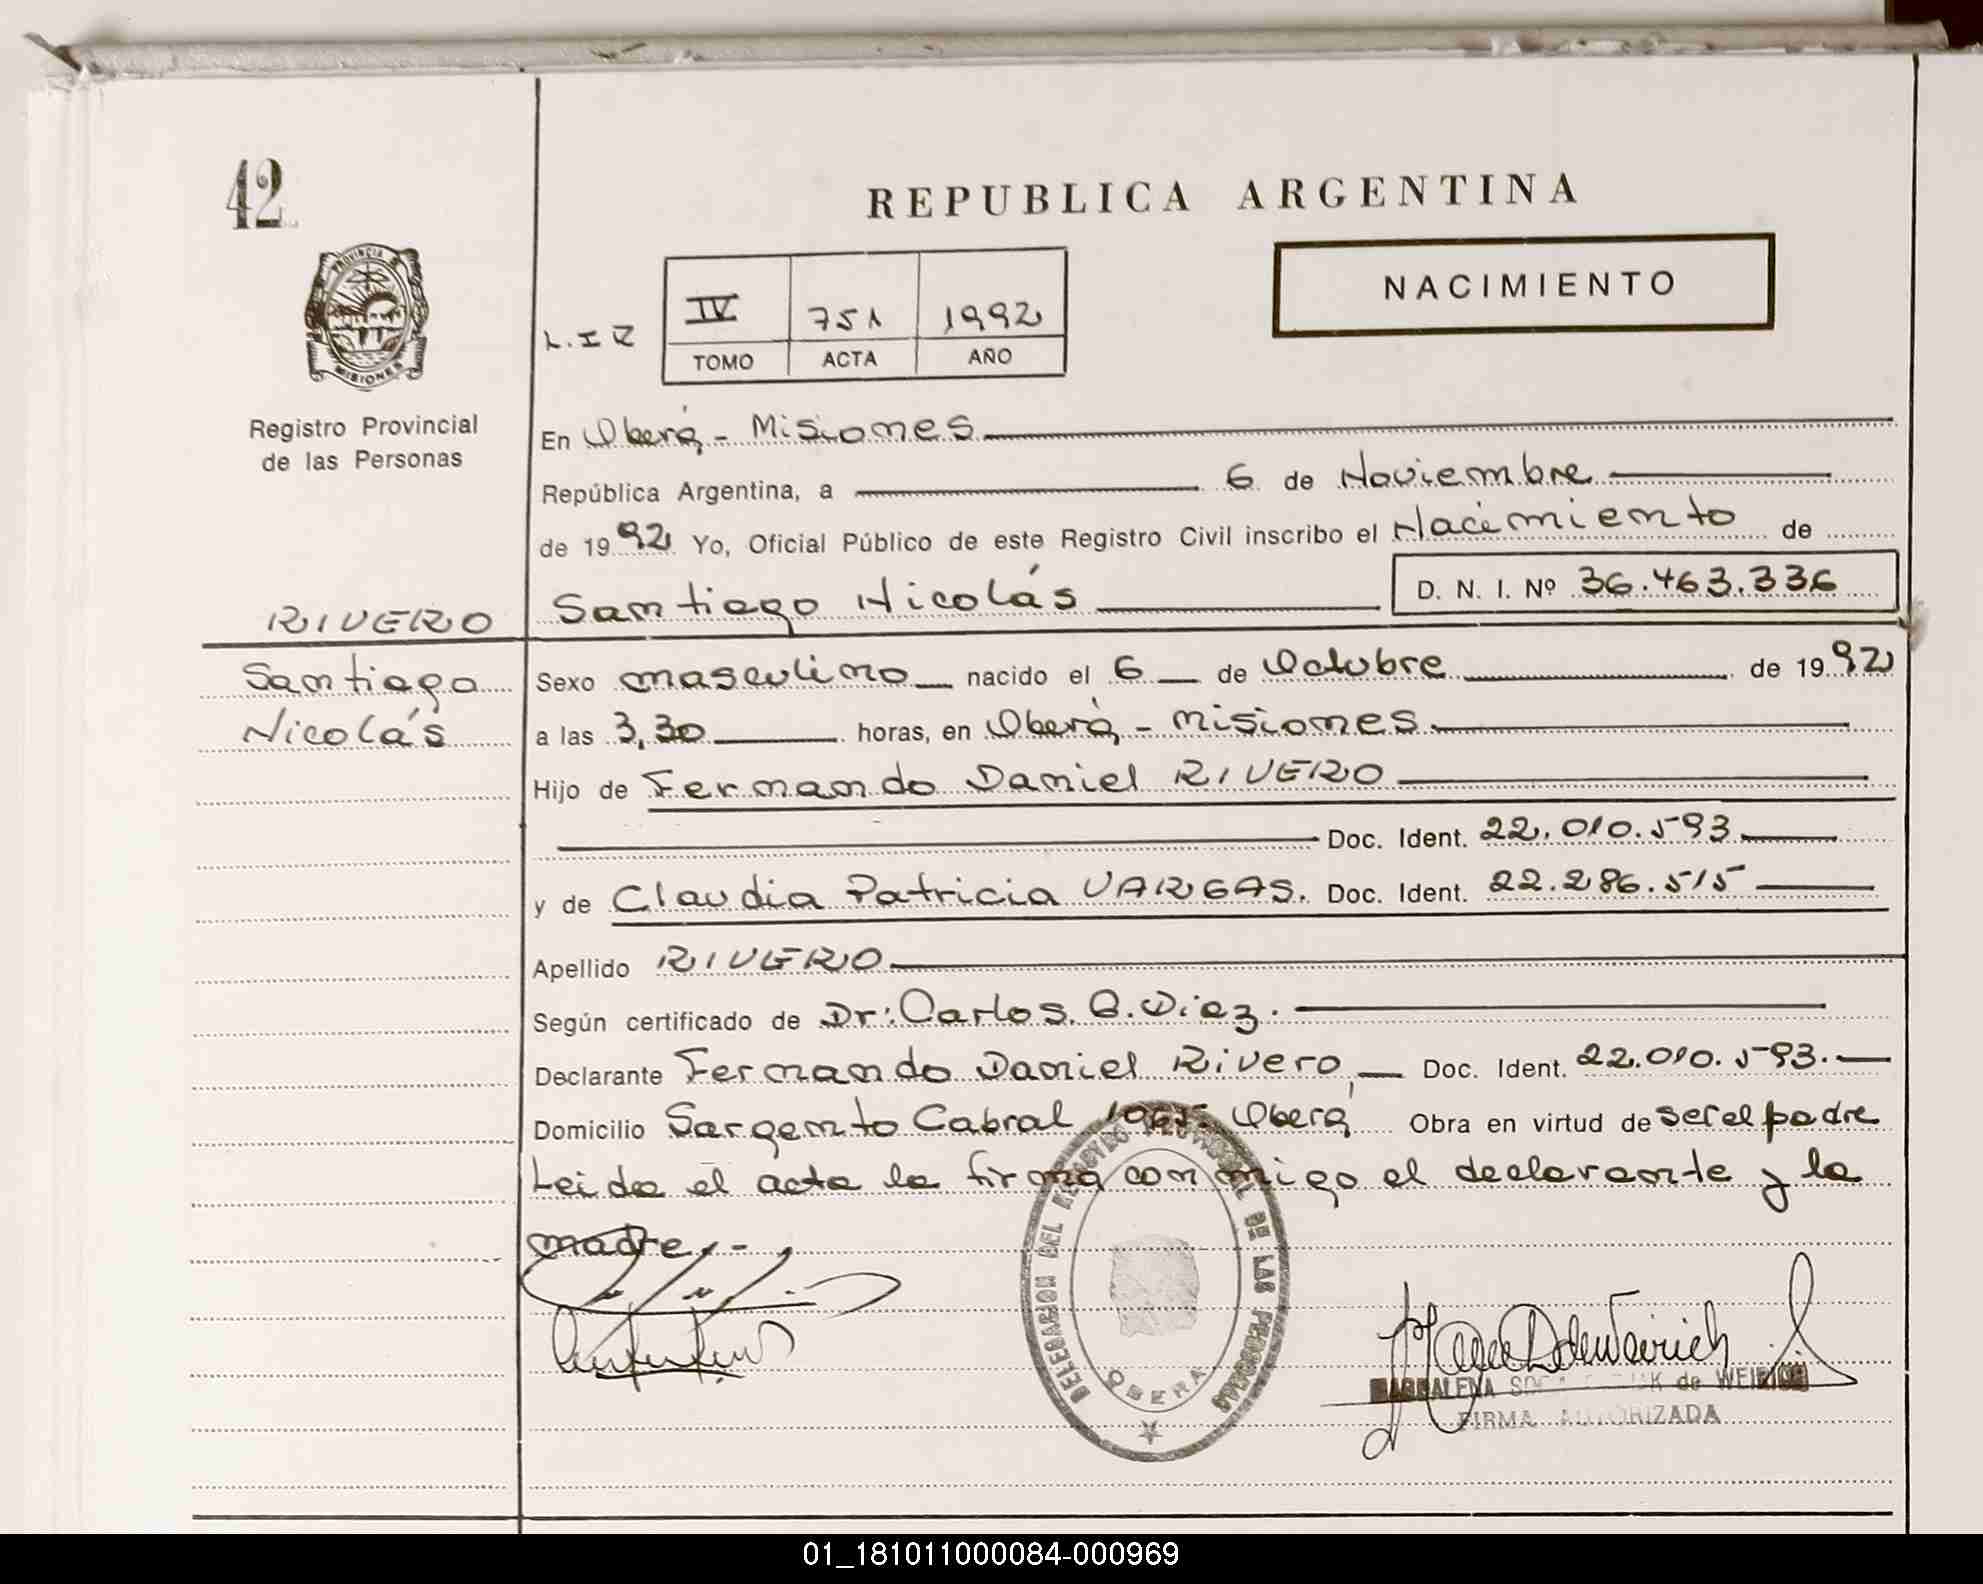 42
REPUBLICA ARGENTINA
PROVINCIA D
MISIONES
NACIMIENTO
IV 751 1992
TOMO ACTA AÑO
Registro Provincial
de las Personas
En Oberá - Misiones
República Argentina, a 6 de Noviembre
de 1992 Yo, Oficial Público de este Registro Civil inscribo el Nacimiento de
Santiago Nicolás D. N. I. Nº 36.463.336
RIVERO
Santiago
Nicolás
Sexo masculino nacido el 6 de Octubre de 1992
a las 3,30 horas, en Oberá - Misiones
Hijo de Fernando Daniel RIVERO
Doc. Ident. 22.010.593
y de Claudia Patricia VARGAS. Doc. Ident. 22.286.515
Apellido RIVERO
Según certificado de Dr: Carlos. G. Diez.
Declarante Fernando Daniel Rivero, Doc. Ident. 22.010.593.
Domicilio Sargento Cabral Oberá Obra en virtud de ser el padre
Leida el acta la firma con migo el declarante y la
madre.-
DELEGACION DEL REGISTRO PROVINCIAL DE LAS PERSONAS
OBERA
MAGDALENA de WEIRICH
FIRMA AUTORIZADA
01_181011000084-000969